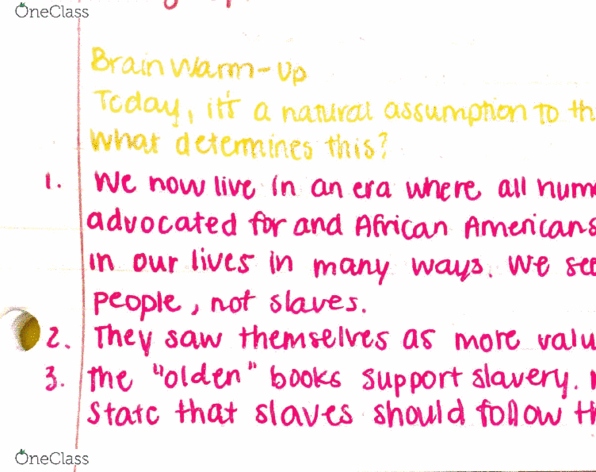 OneClass
Brain Warm-Up
Today, it's a natural assumption to th
What determines this?
1. We now live in an era where all hum
advocated for and African Americans
in our lives in many ways. We see
people, not slaves.
2. They saw themselves as more valu
3. The "olden" books support slavery.
State that slaves should follow th
OneClass